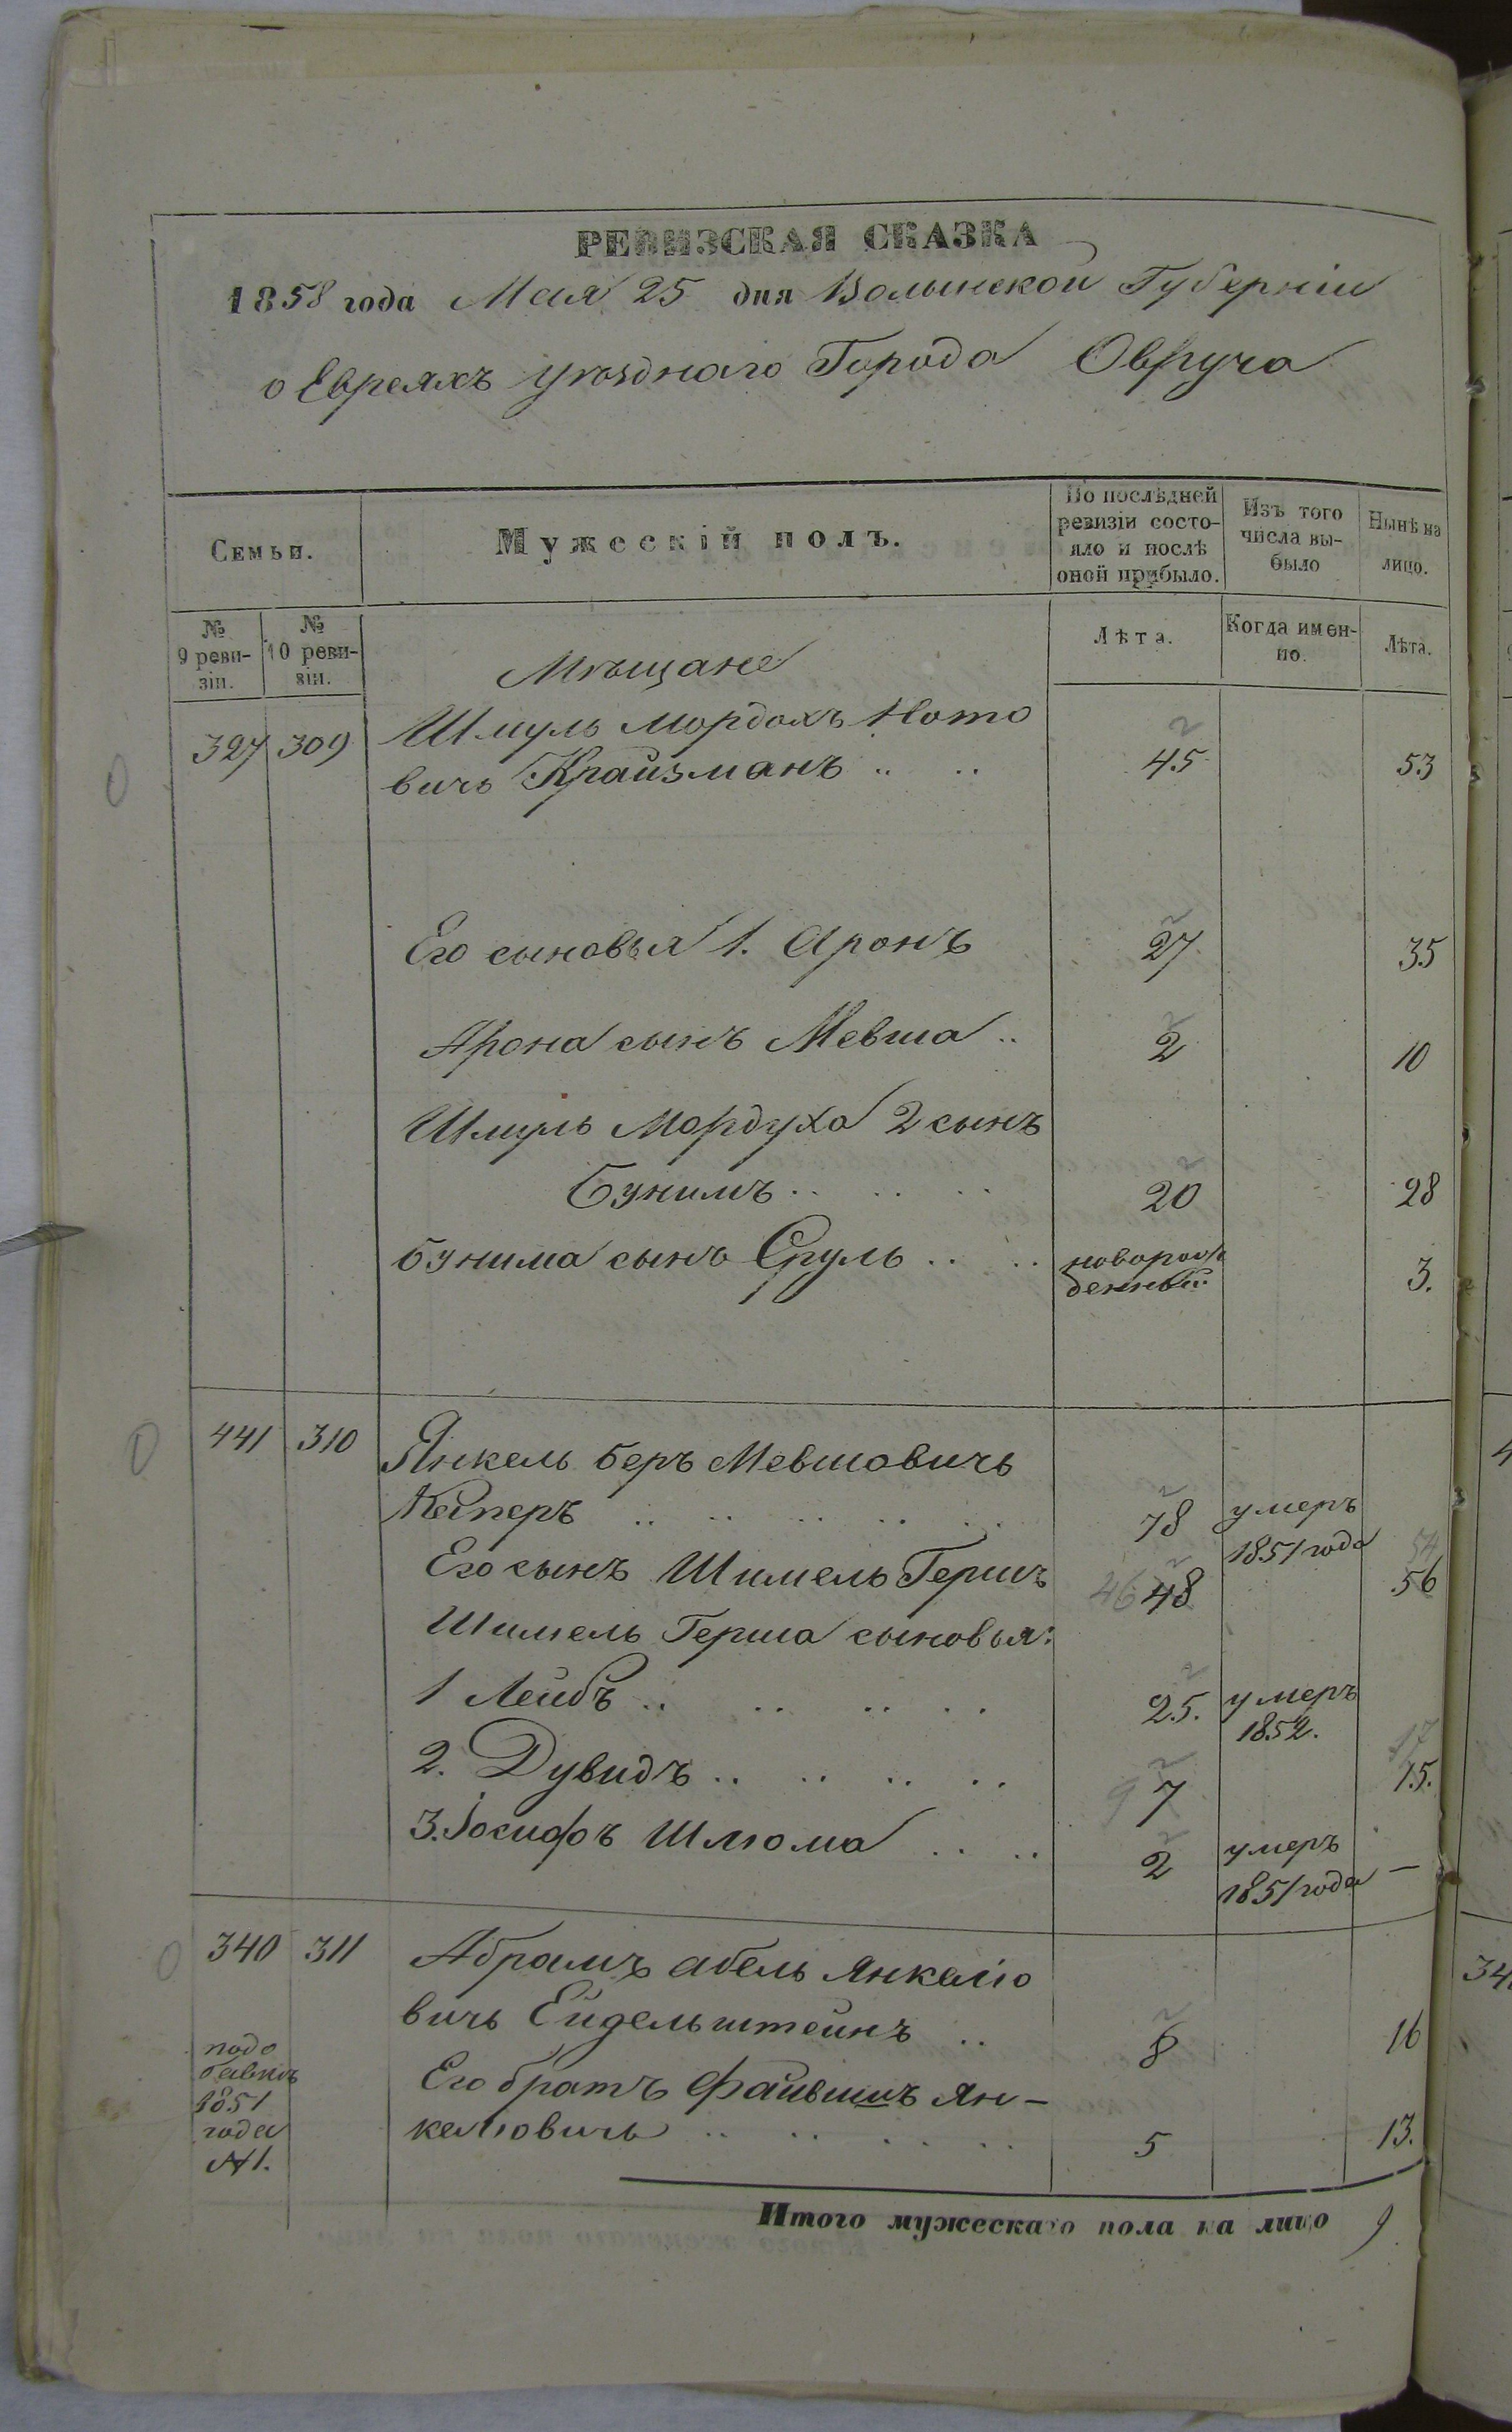 РЕВИЗСКАЯ СКАЗКА
1858 года Мая 25 дня Волынской Губерніи
о Евреяхъ уѣзднаго Города Овруча
Семьи.
Мужескій полъ.
По послѣдней ревизіи состо-
яло и послѣ
оной прибыло.
Изъ того
числа вы-
было
Нынѣ на
лицо.
№
9 реви-
зіи.
№
10 реви-
зіи.
Лѣта.
Когда имен-
но.
Лѣта.
Мѣщане
327 309 Шмуль Мордохъ Ното
вичъ Крайзманъ .. .. 45 53
Его сыновья 1. Аронъ 27 35
Арона сынъ Мевша .. 2 10
Шмуль Мордуха 2 сынъ
Бунимъ .. .. .. 20 28
Бунима сынъ Сруль .. .. новорож
денный 3.
441 310 Янкель Беръ Мевшовичъ
Кеперъ .. .. .. .. .. 78 умеръ
1851 года
Его сынъ Шимель Гершъ 46 48 54 56
Шимель Герша сыновья:
1 Лейбъ .. .. .. .. 25. умеръ
1852.
2. Дувидъ .. .. .. .. 9 7 17 15.
3. Іосифъ Шлюма .. .. 2 умеръ
1851 года —
340 311 Абрамъ Абель Янкеліо
вичъ Ейдельштейнъ .. 8 16
подо
бавкѣ
1851
года
№1.
Его братъ Файвишъ Ян-
келіовичъ .. .. .. .. 5 13.
Итого мужескаго пола на лицо 9